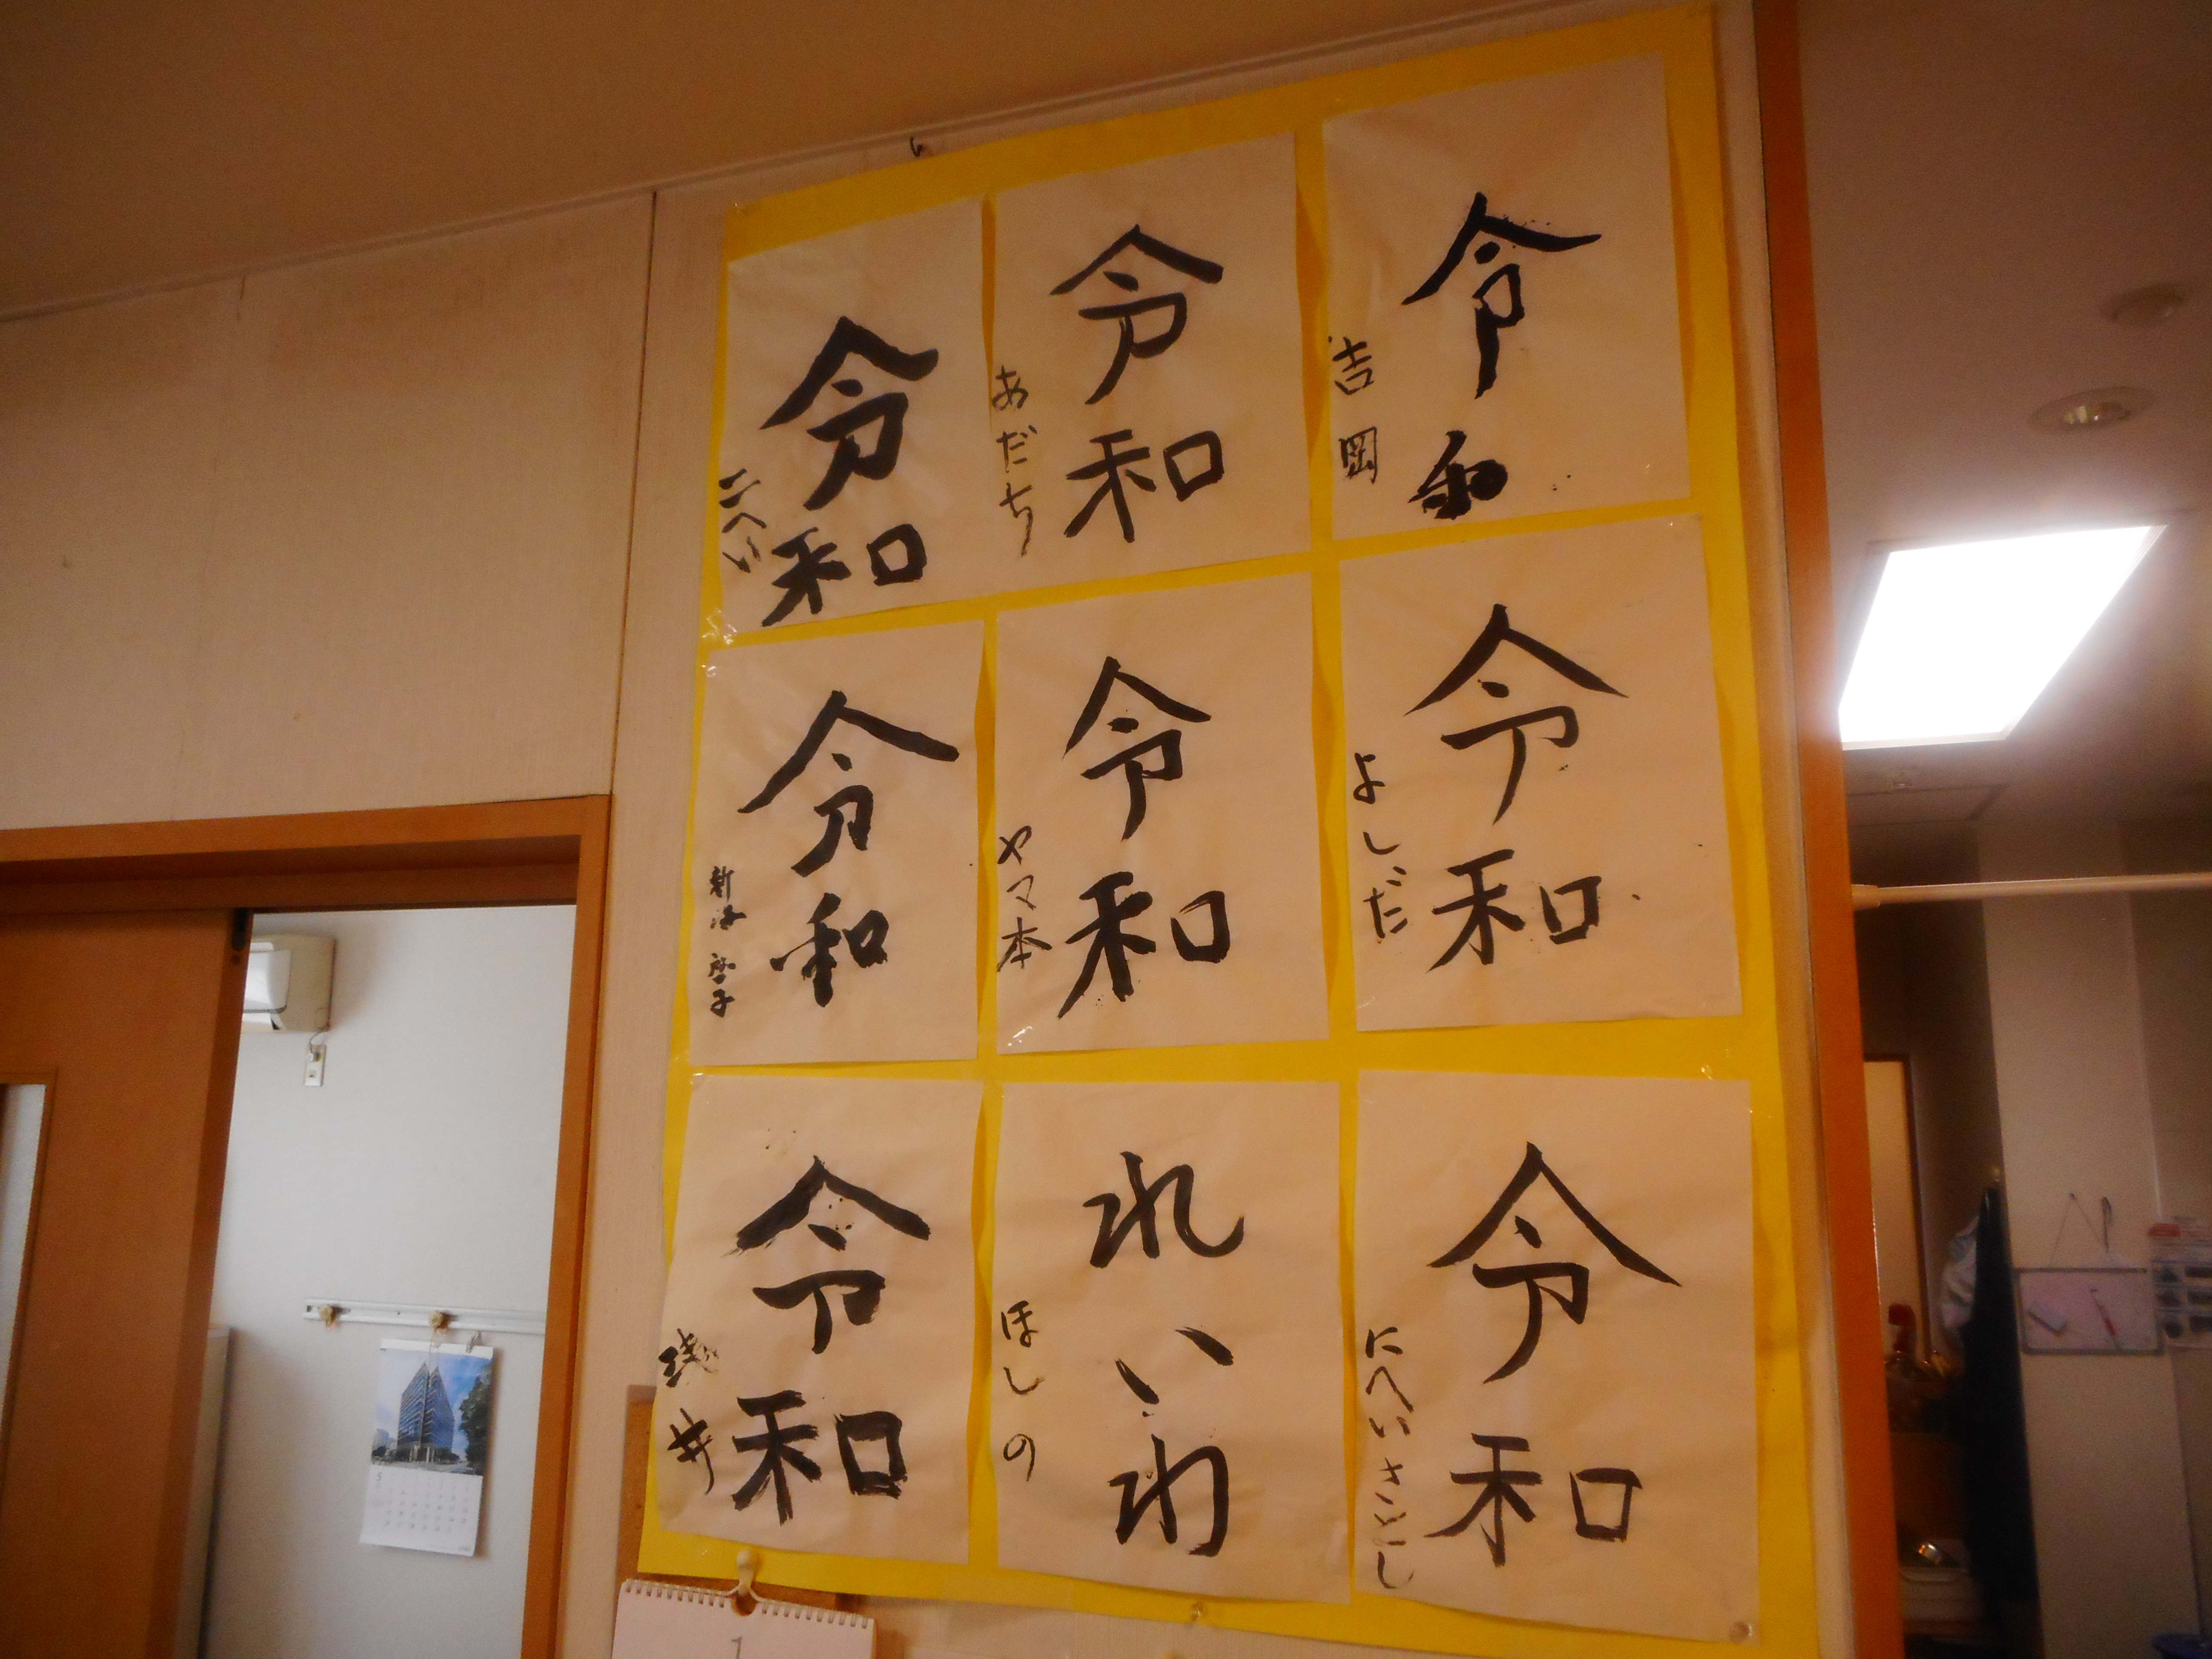 令和
吉岡
令和
あだち
令和
二へい
令和
よしだ
令和
ヤマ本
令和
令和
にへいさとし
れいわ
ほしの
令和
浅井
5
1